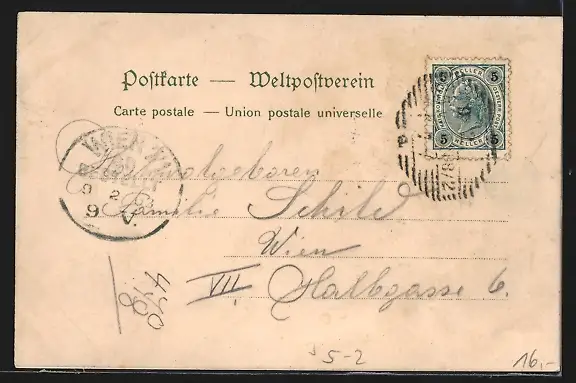 Postkarte — Weltpostverein
Carte postale — Union postale universelle
5 HELLER 5
5 HELLER 5
WIEN
BESTELLT
9. V.
Familie Schild
Wien
VII Halbgasse 6.
440
18
5-2
16,-